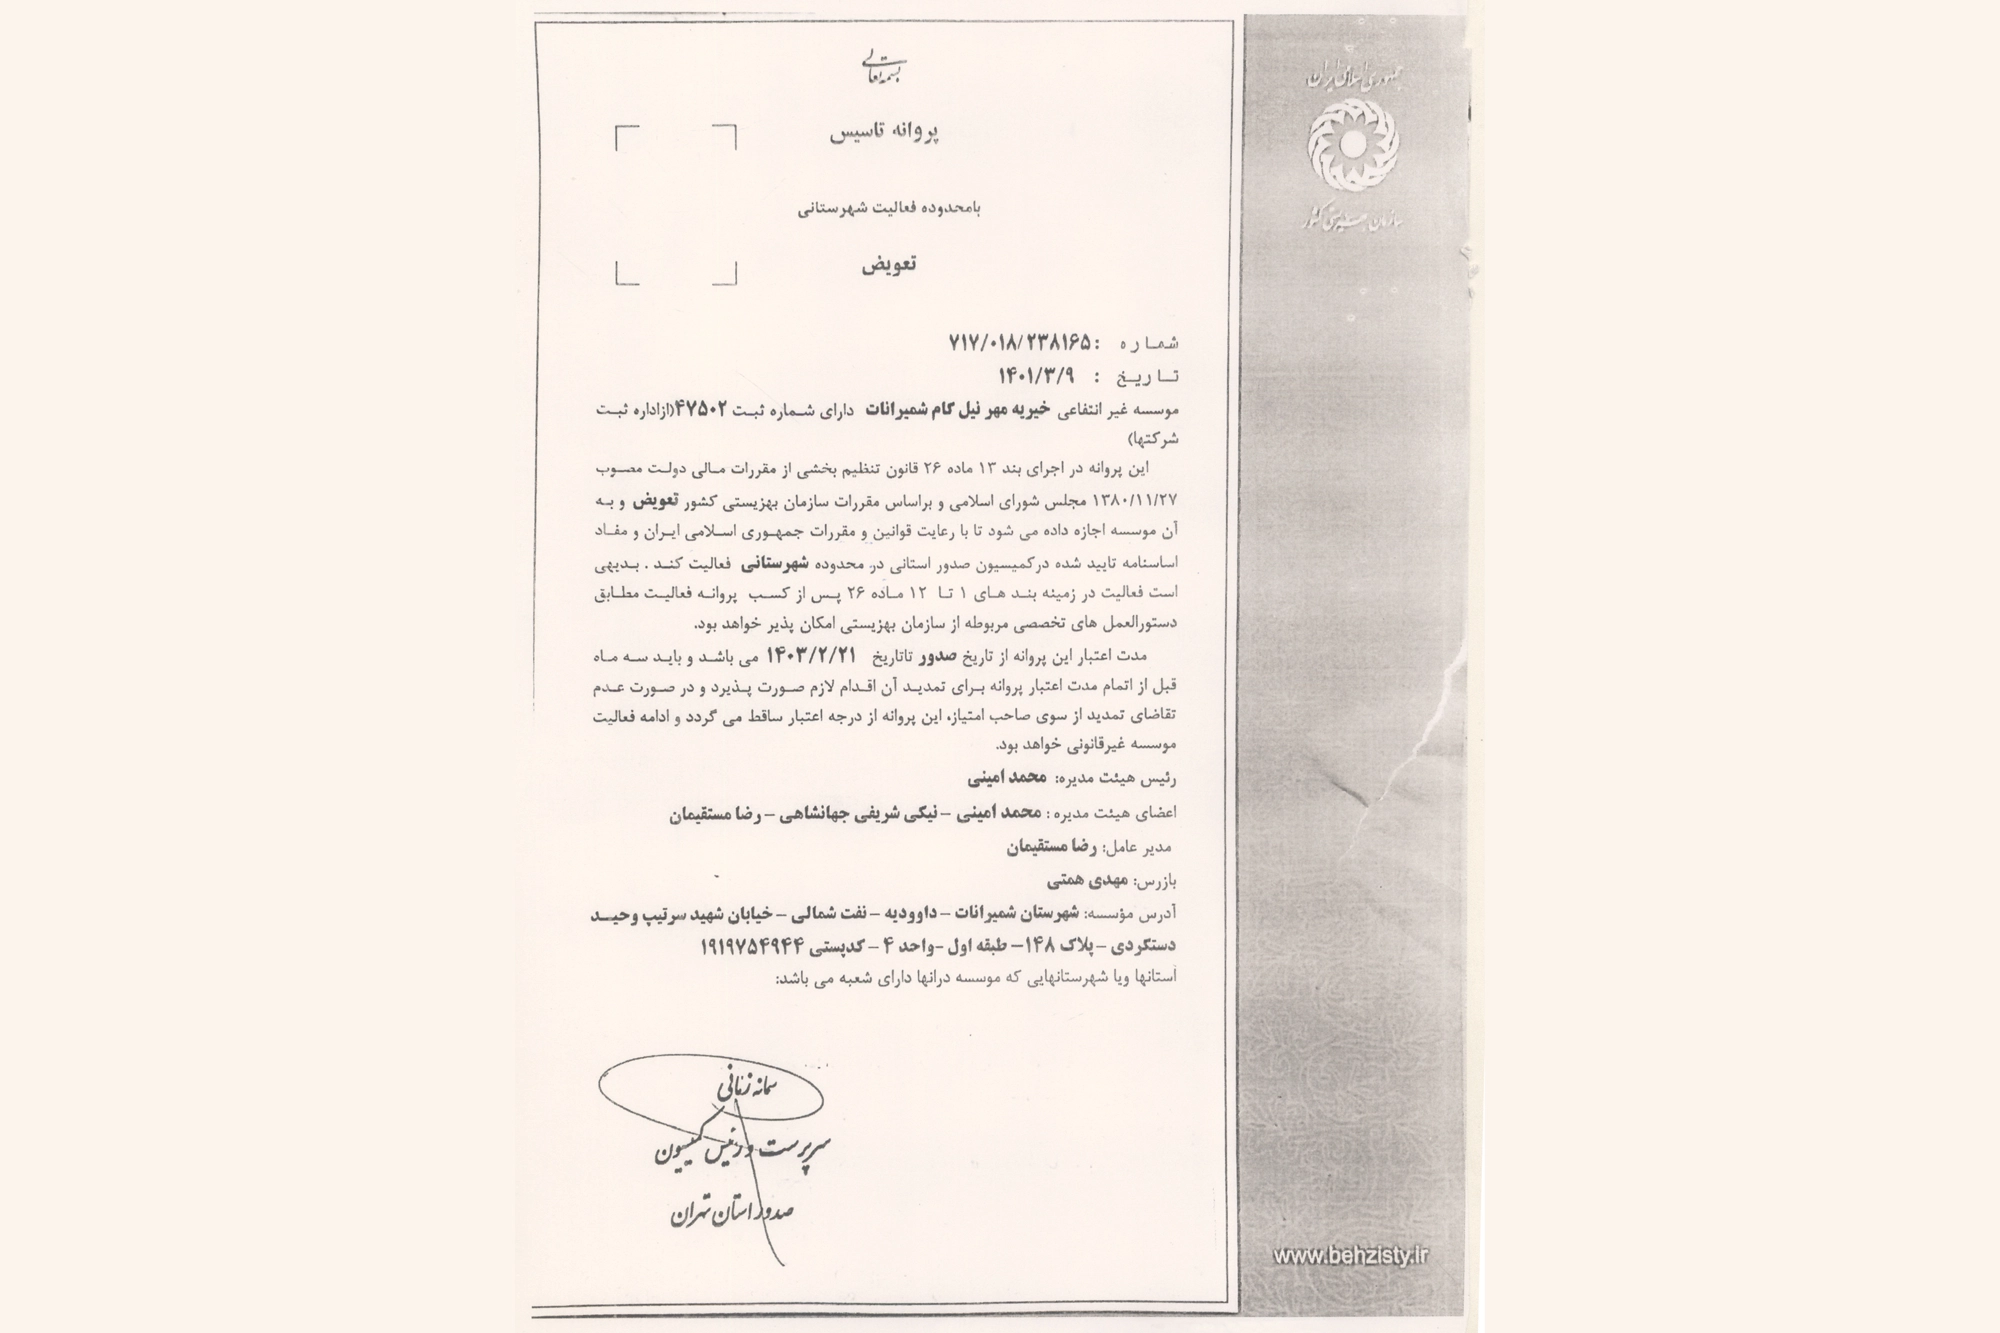 بسمه تعالی
پروانه تاسیس
بامحدوده فعالیت شهرستانی
تعویض
شماره : ۷۱۷/۰۱۸/۲۳۸۱۶۵
تاریخ : ۱۴۰۱/۳/۹
موسسه غیر انتفاعی خیریه مهر نیل گام شمیرانات دارای شماره ثبت ۴۷۵۰۲(ازاداره ثبت
شرکتها)
این پروانه در اجرای بند ۱۳ ماده ۲۶ قانون تنظیم بخشی از مقررات مالی دولت مصوب
۱۳۸۰/۱۱/۲۷ مجلس شورای اسلامی و براساس مقررات سازمان بهزیستی کشور تعویض و به
آن موسسه اجازه داده می شود تا با رعایت قوانین و مقررات جمهوری اسلامی ایران و مفاد
اساسنامه تایید شده درکمیسیون صدور استانی در محدوده شهرستانی فعالیت کند . بدیهی
است فعالیت در زمینه بند های ۱ تا ۱۲ ماده ۲۶ پس از کسب پروانه فعالیت مطابق
دستورالعمل های تخصصی مربوطه از سازمان بهزیستی امکان پذیر خواهد بود.
مدت اعتبار این پروانه از تاریخ صدور تاتاریخ ۱۴۰۳/۲/۲۱ می باشد و باید سه ماه
قبل از اتمام مدت اعتبار پروانه برای تمدید آن اقدام لازم صورت پذیرد و در صورت عدم
تقاضای تمدید از سوی صاحب امتیاز، این پروانه از درجه اعتبار ساقط می گردد و ادامه فعالیت
موسسه غیرقانونی خواهد بود.
رئیس هیئت مدیره: محمد امینی
اعضای هیئت مدیره : محمد امینی – نیکی شریفی جهانشاهی – رضا مستقیمان
مدیر عامل: رضا مستقیمان
بازرس: مهدی همتی
آدرس مؤسسه: شهرستان شمیرانات – داوودیه – نفت شمالی – خیابان شهید سرتیپ وحید
دستگردی – پلاک ۱۴۸– طبقه اول –واحد ۴ – کدپستی ۱۹۱۹۷۵۴۹۴۴
استانها ویا شهرستانهایی که موسسه درانها دارای شعبه می باشد:
سمانه زنانی
سرپرست و رئیس کمیسیون
صدور استان تهران
جمهوری اسلامی ایران
سازمان بهزیستی کشور
www.behzisty.ir